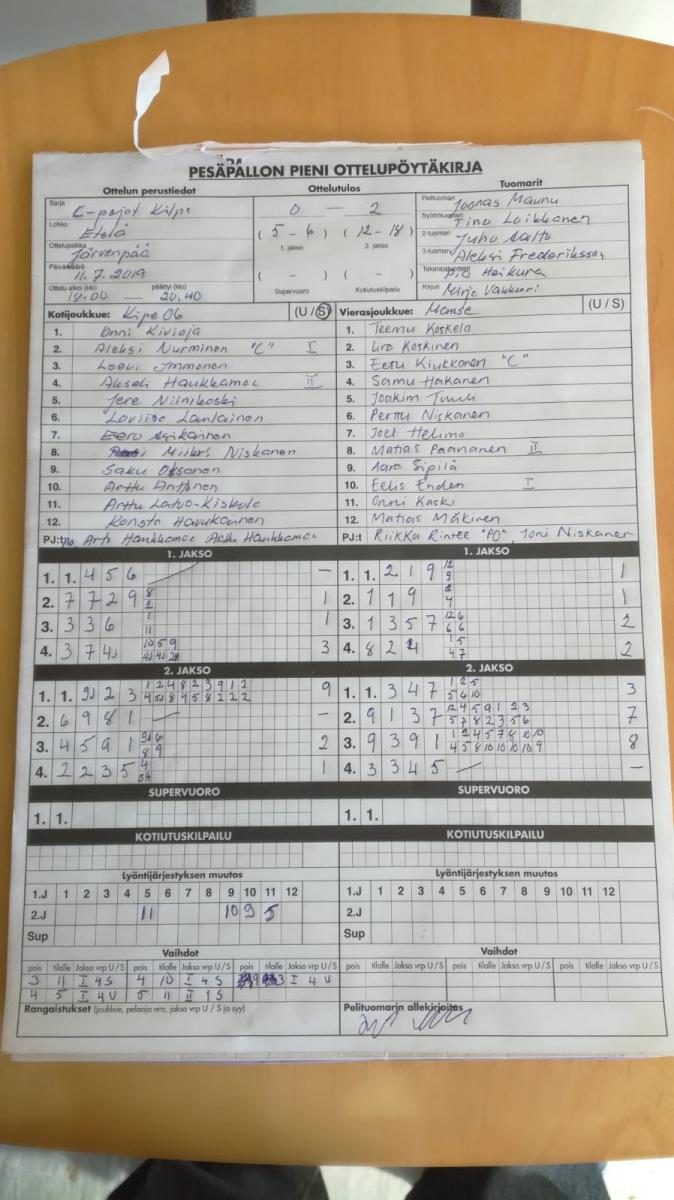 PESÄPALLON PIENI OTTELUPÖYTÄKIRJA
Ottelun perustiedot
Sarja
E-pojat Kilpa
Lohko
Etelä
Ottelupaikka
Järvenpää
Päivämäärä
11.7.2019
Ottelu alkoi (klo) päättyi (klo)
— 20.40
Ottelutulos
0 — 2
( 5 - 6 ) ( 12 - 18 )
1. jakso 2. jakso
( - ) ( - )
Supervuoro Kotiutuskilpailu
Tuomarit
Pelituomari Joonas Maunu
Syöttötuomari Tinu Laikkanen
2-tuomari Juha Aalto
3-tuomari Aleksi Frederiksson
Takarajatuomari P.O Heikura
Kirjuri Mirja Vakkuri
Kotijoukkue: Kipe 06 (U / S)
1. Onni Kivioja
2. Aleksi Nurminen "C" I
3. Leevi Immonen
4. Akseli Haukkamaa II
5. Jere Niinikoski
6. Loviisa Lautiainen
7. Eero
8. Niskanen
9. Saku Oksanen
10. Arttu Anttinen
11. Arttu Latva-Kiskola
12. Konsta Havukainen
PJ:t Arto Haukkamaa Arttu Haukkamaa
Vierasjoukkue: Manse (U / S)
1. Teemu Koskela
2. Iiro Koskinen
3. Eetu Kiukkonen "C"
4. Samu Hakanen
5. Joakim Tuuli
6. Perttu Niskanen
7. Joel Helimo
8. Matias Paananen II
9. Aaro Sipilä
10. Eelis Enden I
11. Onni Kaski
12. Matias Mäkinen
PJ:t Riikka Rintee "PO", Joni Niskanen
1. JAKSO
1. 1. 4 5 6 —
2. 7 7 2 9 8 1 1
3. 3 3 6 1 11 1
4. 3 7 4 3
1. JAKSO
1. 1. 2 1 9 12 9 1
2. 1 1 9 1
3. 1 3 5 7 12 6 6 6 2
4. 8 2 1 5 4 7 2
2. JAKSO
1. 1. 2 3 1 2 4 8 2 3 9 1 2 9
2. 6 9 8 1 — —
3. 4 5 9 1 2
4. 2 2 3 5 1
2. JAKSO
1. 1. 3 4 7 1 2 5 5 6 10 3
2. 9 1 3 7 12 4 5 9 1 2 3 5 7 8 2 3 5 6 7
3. 9 3 9 1 1 2 4 5 7 8 10 10 4 5 8 10 10 10 10 9 8
4. 3 3 4 5 — —
SUPERVUORO
1. 1.
SUPERVUORO
1. 1.
KOTIUTUSKILPAILU
KOTIUTUSKILPAILU
Lyöntijärjestyksen muutos
1.J 1 2 3 4 5 6 7 8 9 10 11 12
2.J 11 10 9 5
Sup
Lyöntijärjestyksen muutos
1.J 1 2 3 4 5 6 7 8 9 10 11 12
2.J
Sup
Vaihdot
pois tilalle Jakso vrp U / S pois tilalle Jakso vrp U / S pois tilalle Jakso vrp U / S
3 11 I 4 S 4 10 I 4 S 9 3 I 4 U
4 5 I 4 U 5 11 II 1 S
Vaihdot
pois tilalle Jakso vrp U / S pois tilalle Jakso vrp U / S pois tilalle Jakso vrp U / S
Rangaistukset (joukkue, pelaaja nro, jakso vrp U / S ja syy)
Pelituomarin allekirjoitus